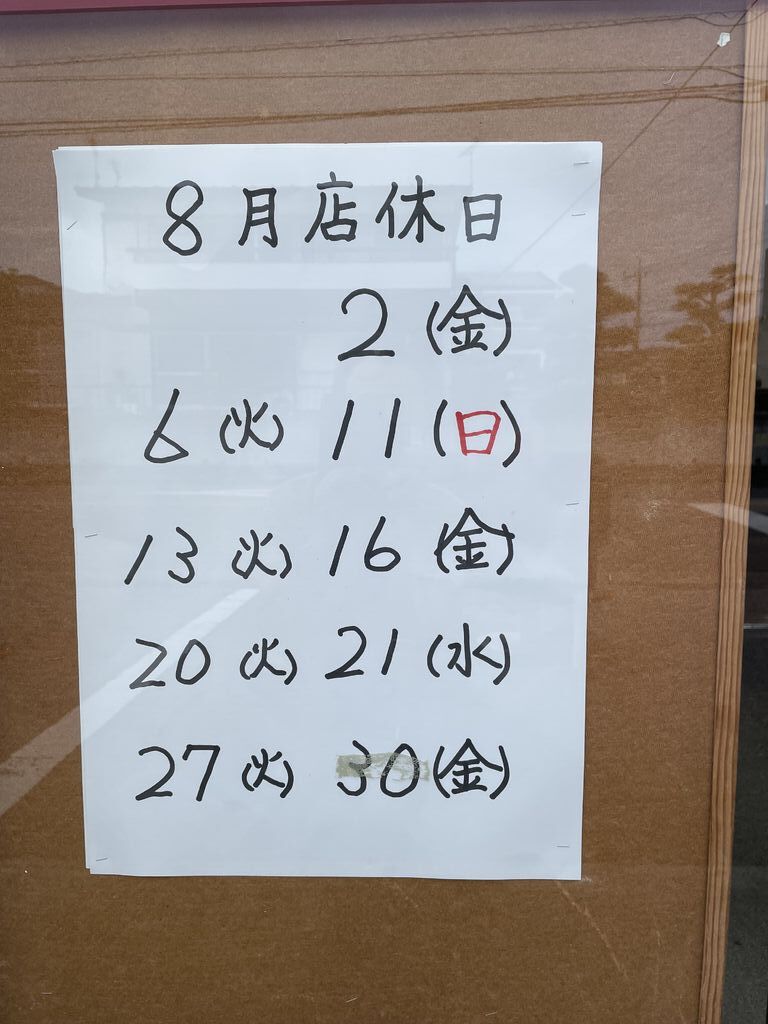 8月店休日
2(金)
6(火) 11(日)
13(火) 16(金)
20(火) 21(水)
27(火) 30(金)